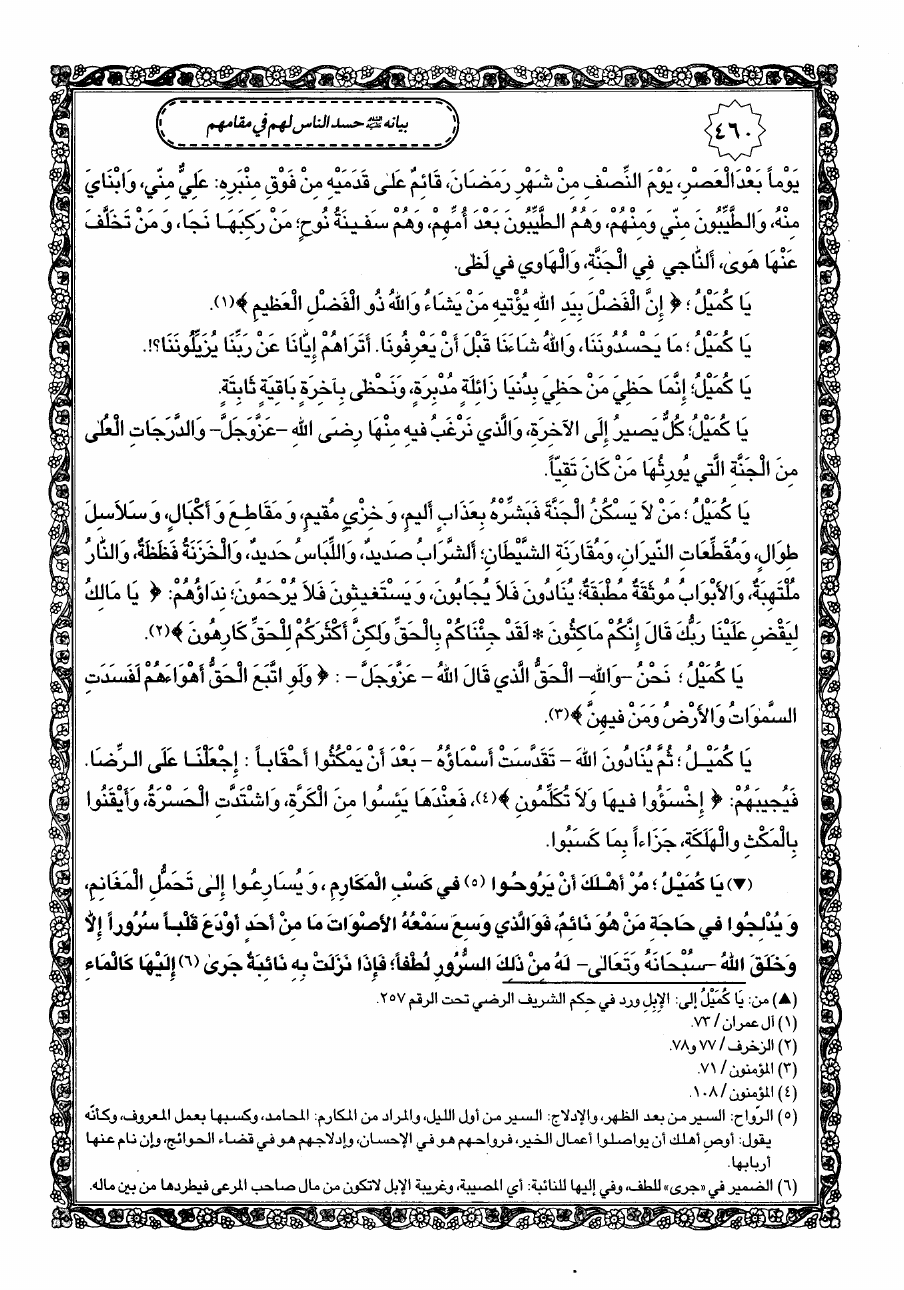 ٤٦٠
بيانه عليه السلام حسد الناس لهم في مقامهم
يَوْماً بَعْدَ الْعَصْرِ، يَوْمَ النِّصْفِ مِنْ شَهْرِ رَمَضَانَ، قَائِمٌ عَلىٰ قَدَمَيْهِ مِنْ فَوْقِ مِنْبَرِهِ: عَلِيٌّ مِنّي، وَابْنَايَ
مِنْهُ، وَالطَّيِّبُونَ مِنّي وَمِنْهُمْ، وَهُمُ الطَّيِّبُونَ بَعْدَ أُمِّهِمْ، وَهُمْ سَفينَةُ نُوحٍ؛ مَنْ رَكِبَهَا نَجَا، وَمَنْ تَخَلَّفَ
عَنْهَا هَوىٰ، أَلنَّاجي فِي الْجَنَّةِ، وَالْهَاوي في لَظىٰ.
يَا كُمَيْلُ؛ ﴿ إِنَّ الْفَضْلَ بِيَدِ اللهِ يُؤْتيهِ مَنْ يَشَاءُ وَاللهُ ذُو الْفَضْلِ الْعَظيمِ ﴾(١).
يَا كُمَيْلُ؛ مَا يَحْسُدُونَنَا، وَاللهُ شَاءَنَا قَبْلَ أَنْ يَعْرِفُونَا. أَتَرَاهُمْ إِيَّانَا عَنْ رَبِّنَا يُزَيِّلُونَنَا؟!.
يَا كُمَيْلُ؛ إِنَّمَا حَظِيَ مَنْ حَظِيَ بِدُنْيَا زَائِلَةٍ مُدْبِرَةٍ، وَنَحْظىٰ بِآخِرَةٍ بَاقِيَةٍ ثَابِتَةٍ.
يَا كُمَيْلُ؛ كُلٌّ يَصيرُ إِلَى الآخِرَةِ، وَالَّذي نَرْغَبُ فيهِ مِنْهَا رِضَى اللهِ -عَزَّوَجَلَّ- وَالدَّرَجَاتِ الْعُلىٰ
مِنَ الْجَنَّةِ الَّتي يُورِثُهَا مَنْ كَانَ تَقِيّاً.
يَا كُمَيْلُ؛ مَنْ لاَ يَسْكُنُ الْجَنَّةَ فَبَشِّرْهُ بِعَذَابٍ أَليمٍ، وَخِزْيٍ مُقيمٍ، وَمَقَاطِعَ وَأَكْبَالٍ، وَسَلاَسِلَ
طِوَالٍ، وَمُقَطِّعَاتِ النّيرَانِ، وَمُقَارَنَةِ الشَّيْطَانِ؛ أَلشَّرَابُ صَديدٌ، وَاللِّبَاسُ حَديدٌ، وَالْخَزَنَةُ فَظَظَةٌ، وَالنَّارُ
مُلْتَهِبَةٌ، وَالأَبْوَابُ مُوثَقَةٌ مُطْبَقَةٌ؛ يُنَادُونَ فَلاَ يُجَابُونَ، وَيَسْتَغيثُونَ فَلاَ يُرْحَمُونَ؛ نِدَاؤُهُمْ: ﴿ يَا مَالِكُ
لِيَقْضِ عَلَيْنَا رَبُّكَ قَالَ إِنَّكُمْ مَاكِثُونَ * لَقَدْ جِئْنَاكُمْ بِالْحَقِّ وَلكِنَّ أَكْثَرَكُمْ لِلْحَقِّ كَارِهُونَ ﴾(٢).
يَا كُمَيْلُ؛ نَحْنُ -وَاللهِ- الْحَقُّ الَّذي قَالَ اللهُ - عَزَّوَجَلَّ - : ﴿ وَلَوِ اتَّبَعَ الْحَقُّ أَهْوَاءَهُمْ لَفَسَدَتِ
السَّمٰوَاتُ وَالأَرْضُ وَمَنْ فيهِنَّ ﴾(٣).
يَا كُمَيْلُ؛ ثُمَّ يُنَادُونَ اللهَ - تَقَدَّسَتْ أَسْمَاؤُهُ - بَعْدَ أَنْ يَمْكُثُوا أَحْقَاباً : إِجْعَلْنَا عَلَى الرِّضَا.
فَيُجيبَهُمْ: ﴿ إِخْسَؤُوا فيهَا وَلاَ تُكَلِّمُونِ ﴾(٤)، فَعِنْدَهَا يَئِسُوا مِنَ الْكَرَّةِ، وَاشْتَدَّتِ الْحَسْرَةُ، وَأَيْقَنُوا
بِالْمَكْثِ وَالْهَلَكَةِ، جَزَاءاً بِمَا كَسَبُوا.
(▼) يَا كُمَيْلُ؛ مُرْ أَهْلَكَ أَنْ يَرُوحُوا (٥) في كَسْبِ الْمَكَارِمِ، وَيُسَارِعُوا إِلىٰ تَحَمُّلِ الْمَغَانِمِ،
وَيُدْلِجُوا في حَاجَةِ مَنْ هُوَ نَائِمٌ، فَوَالَّذي وَسِعَ سَمْعُهُ الأَصْوَاتَ مَا مِنْ أَحَدٍ أَوْدَعَ قَلْباً سُرُوراً إِلاَّ
وَخَلَقَ اللهُ -سُبْحَانَهُ وَتَعَالىٰ- لَهُ مِنْ ذلِكَ السُّرُورِ لُطْفاً؛ فَإِذَا نَزَلَتْ بِهِ نَائِبَةٌ جَرىٰ (٦) إِلَيْهَا كَالْمَاءِ
(▲) من: يَا كُمَيْلُ إلى: الإِبِلِ ورد في حِكم الشريف الرضي تحت الرقم ٢٥٧.
(١) آل عمران / ٧٣.
(٢) الزخرف / ٧٧ و٧٨.
(٣) المؤمنون / ٧١.
(٤) المؤمنون / ١٠٨.
(٥) الرّواح: السير من بعد الظهر، والإدلاج: السير من أول الليل، والمراد من المكارم: المحامد، وكسبها بعمل المعروف، وكأنّه
يقول: أوصِ أهلك أن يواصلوا أعمال الخير، فرواحهم هو في الإحسان، وإدلاجهم هو في قضاء الحوائج، وإن نام عنها
أربابها.
(٦) الضمير في «جرى» للطف، وفي إليها للنائبة: أي المصيبة، وغريبة الإبل لاتكون من مال صاحب المرعى فيطردها من بين ماله.